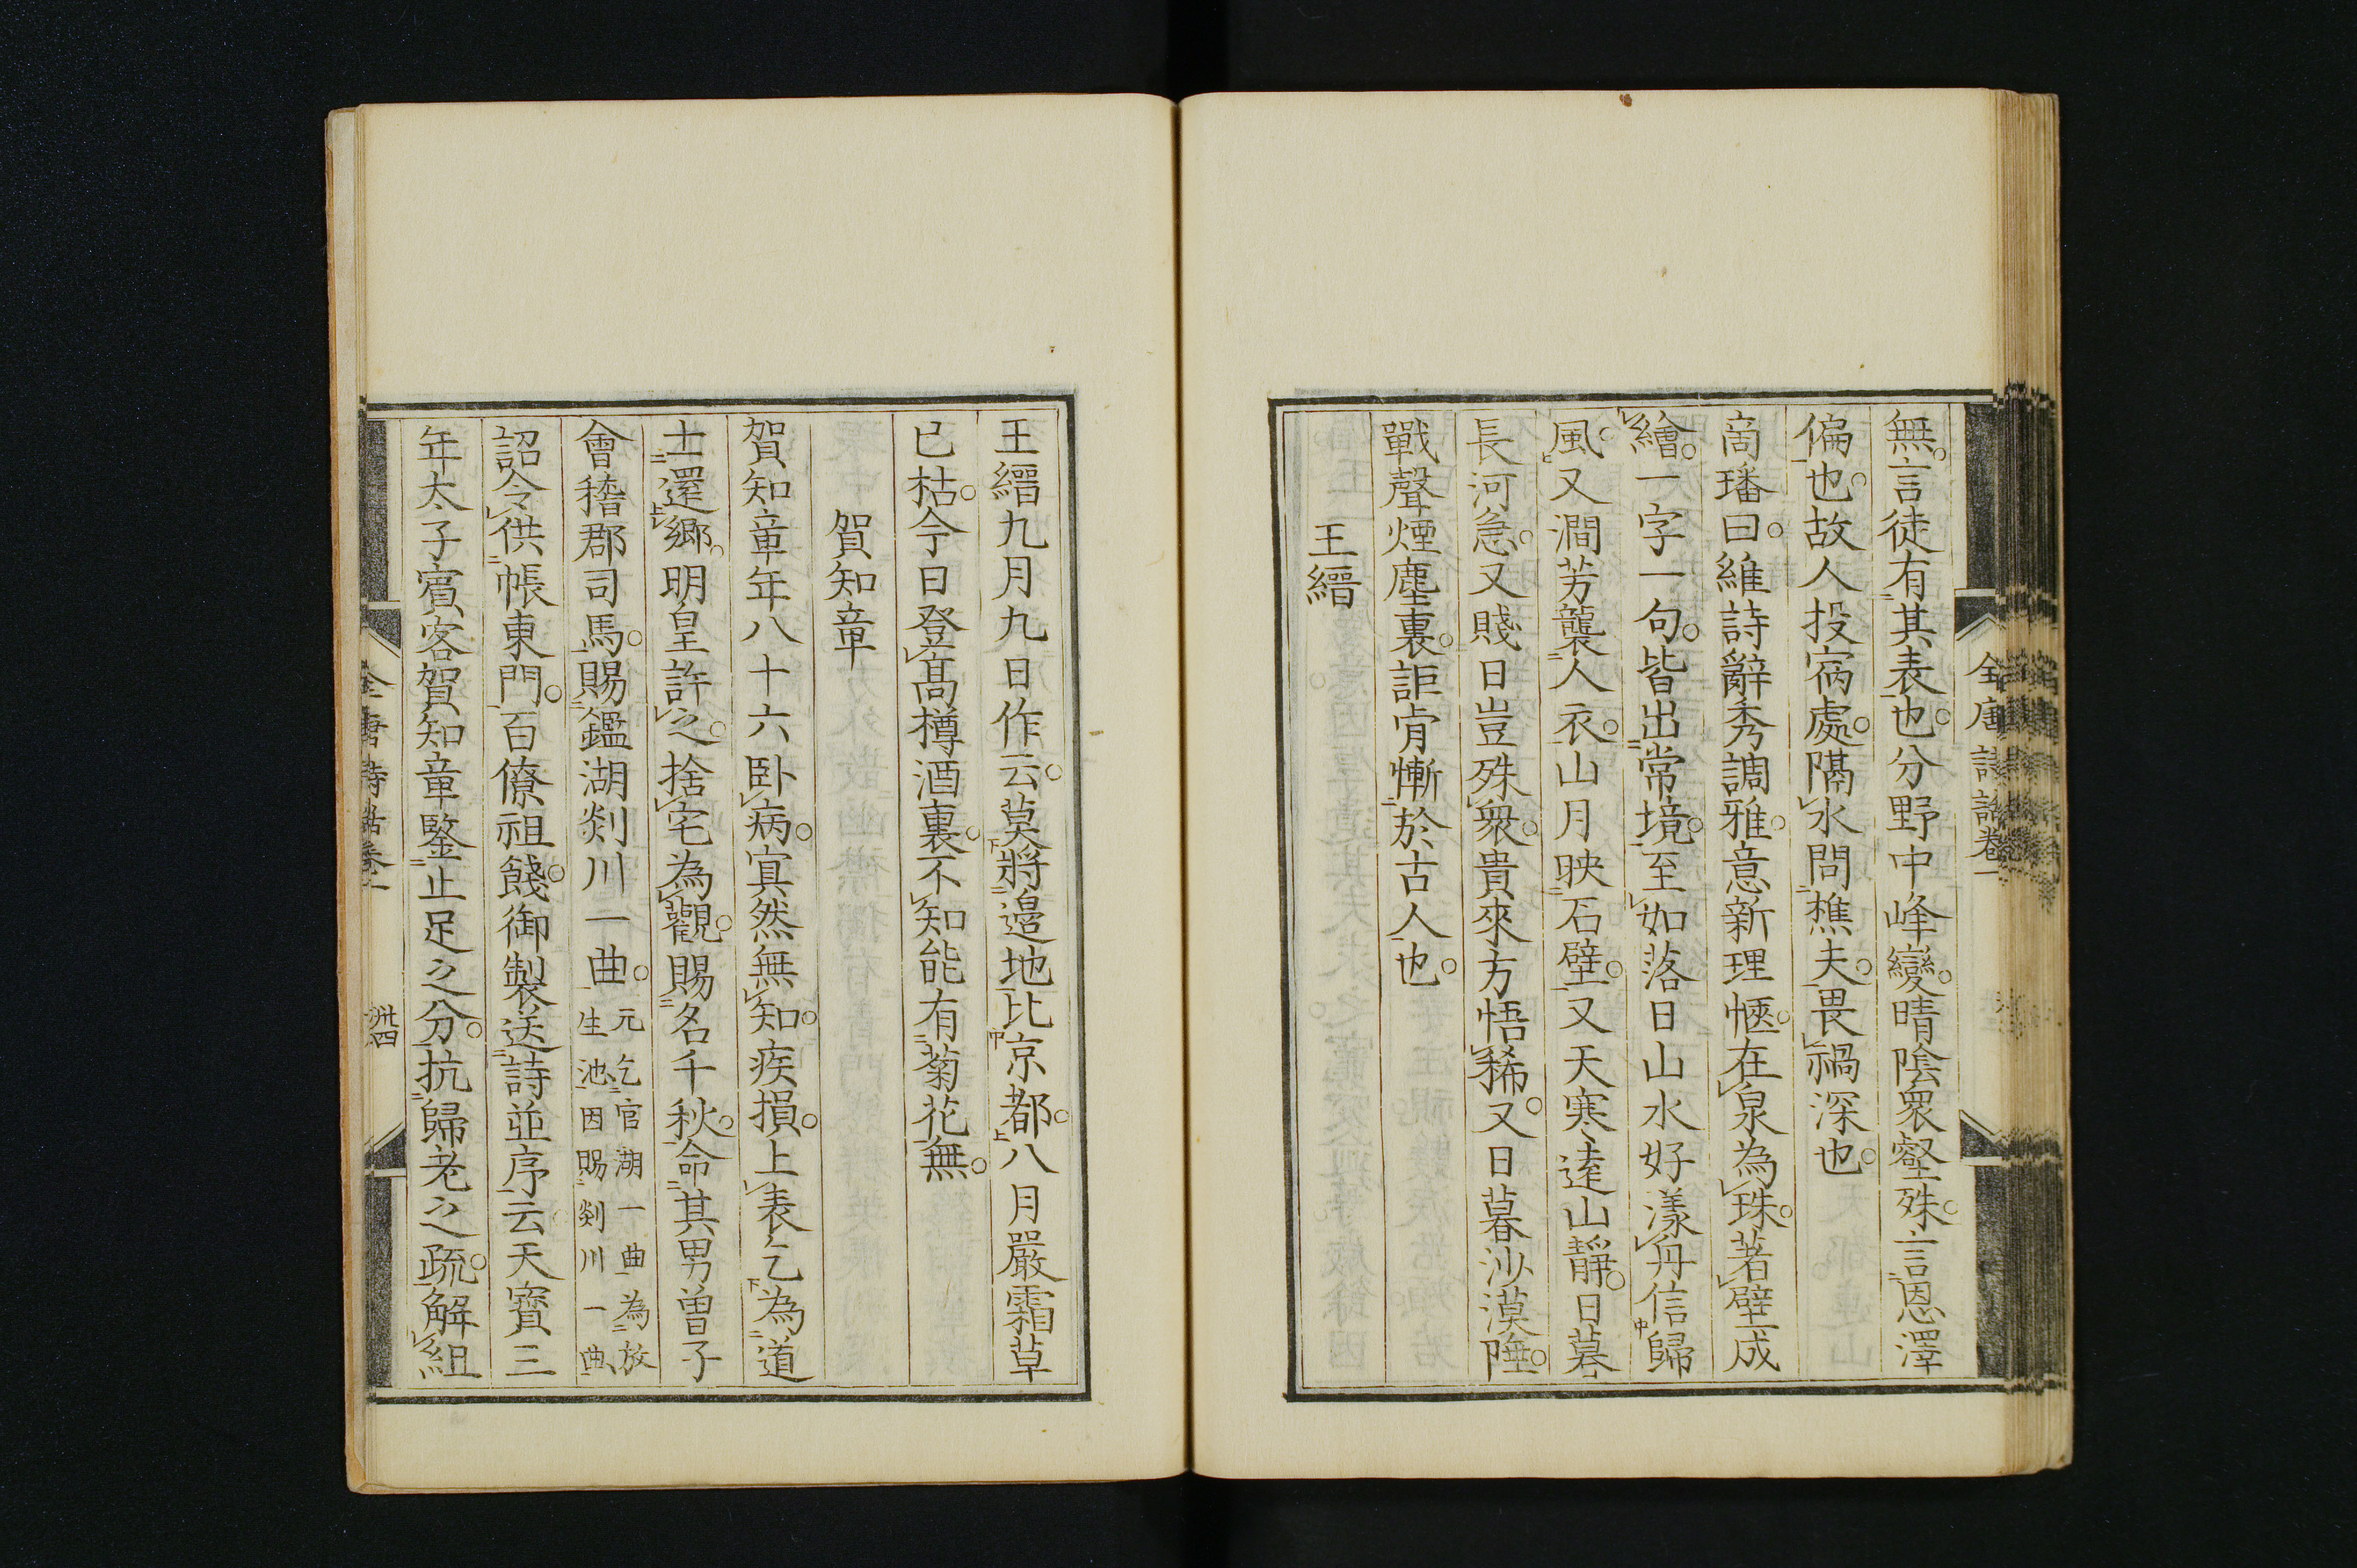 無言徒有其表也分野中峰變晴陰眾壑殊言恩澤
偏也故人投宿處隔水問樵夫畏禍深也
啇璠曰維詩辭秀調雅意新理愜在泉為珠著壁成
繪一字一句皆出常境至如落日山水好漾舟信歸
風又澗芳襲人衣山月映石壁又天寒遠山靜日暮
長河急又賤日豈殊衆貴來方悟稀又日暮沙漠陲
戰聲煙塵裏詎肯慚於古人也
王縉
全唐詩話卷一
王縉九月九日作云莫將邊地比京都八月嚴霜草
已枯今日登高樽酒裏不知能有菊花無
賀知章
賀知章年八十六卧病冥然無知疾損上表乞為道
士還鄉明皇許之捨宅為觀賜名千秋命其男曾子
會稽郡司馬賜鑑湖剡川一曲
元乞官湖一曲為放
生池因賜剡川一曲
詔令供帳東門百僚祖餞御製送詩並序云天寶三
年太子賓客賀知章鑒止足之分抗歸老之疏解組
全唐詩話卷一
卅四